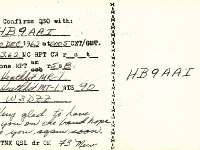 Confirms QSO with:
HB9AAI
DEC 1962 at 0005 GMT/
MC RPT CW r s t
RPT on
ssb r 5 s 8
Heathkit MR-1
Heathkit MT-1 WTS 90
W3DZZ
Very glad to have
you on the band hope
you again soon.
TNX QSL dr OM 73
HB9AAI